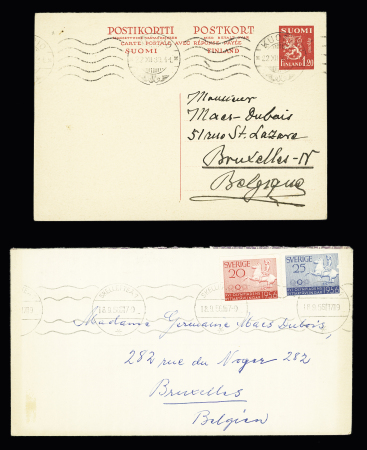 POSTIKORTTI POSTKORT
CARTE POSTALE AVEC RÉPONSE PAYÉE
SUOMI FINLAND
SUOMI
FINLAND 1,20
Monsieur
Maes-Dubois
51 rue St. Lazare
Bruxelles-N
Belgique
SVERIGE
20
1956
SVERIGE
25
1956
Madame Germaine Maes Dubois,
282 rue du Noyer 282
Bruxelles
Belgien